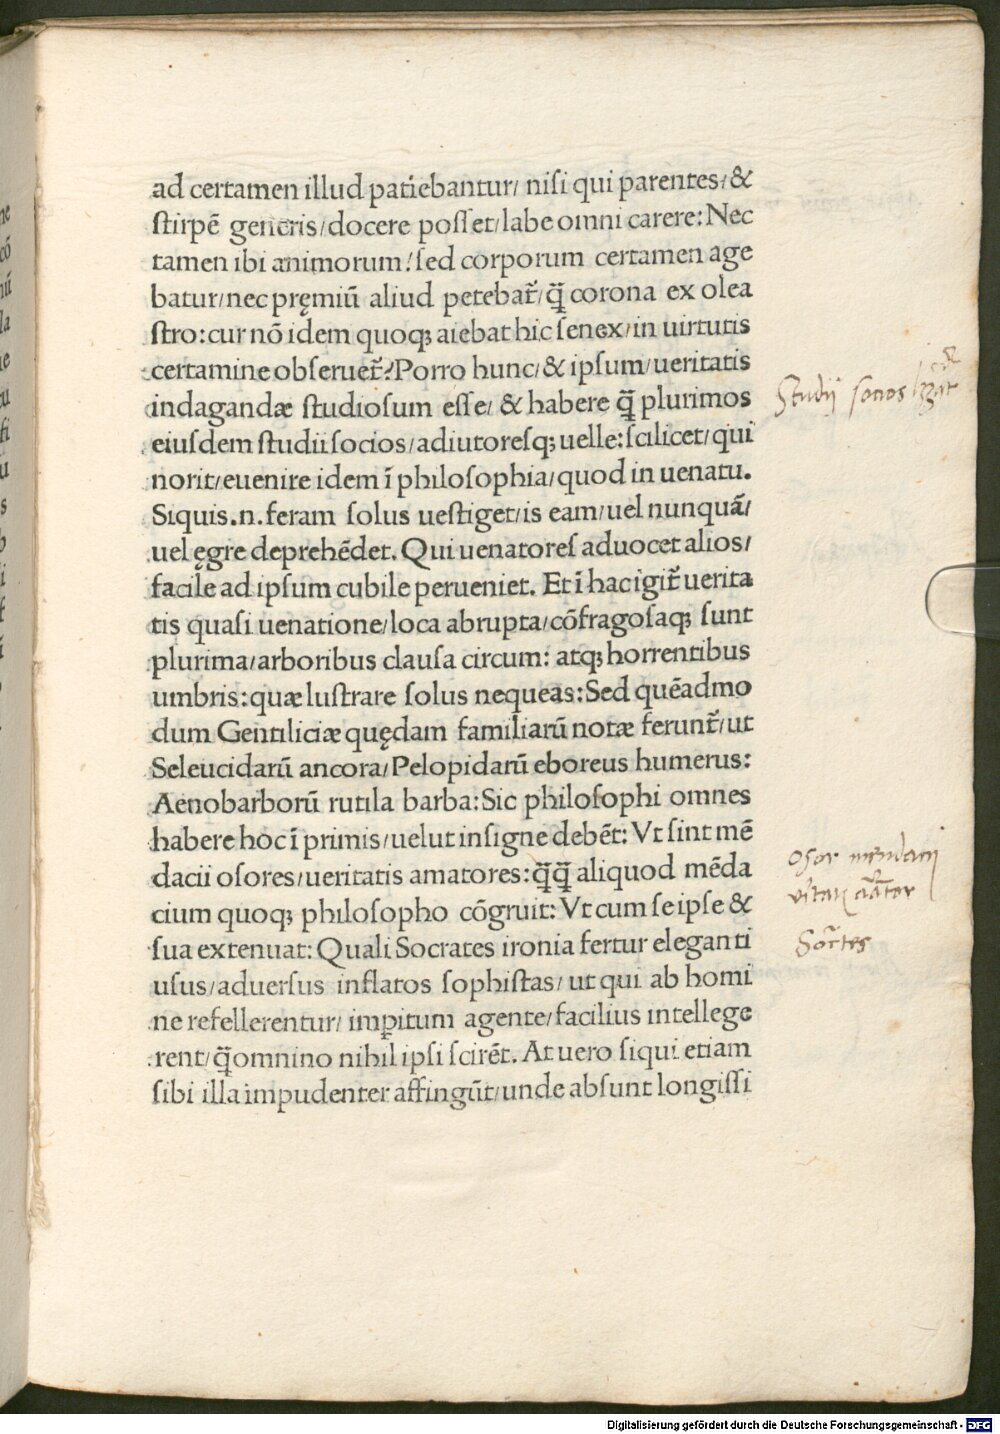 ad certamen illud patiebantur/ nisi qui parentes/ &
stirpē generis/docere posset/labe omni carere: Nec
tamen ibi animorum/sed corporum certamen age
batur/nec pręmiū aliud petebat᷑/q̄̈ corona ex olea
stro: cur nō idem quoq; aiebat hic senex/in uirtutis
certamine obseruet᷑? Porro hunc/& ipsum/ueritatis
indagandæ studiosum esse/ & habere q̄̈ plurimos
eiusdem studii socios/adiutoresq; uelle: scilicet/qui
norit/euenire idem ī philosophia/quod in uenatu.
Siquis.n.feram solus uestiget/is eam/uel nunquā/
uel ęgre deprehēdet. Qui uenatores aduocet alios/
facile ad ipsum cubile perueniet. Et ī hac igit᷑ uerita
tis quasi uenatione/loca abrupta/cōfragosaq; sunt
plurima/arboribus clausa circum: atq; horrentibus
umbris: quæ lustrare solus nequeas: Sed quēadmo
dum Gentiliciæ quędam familiarū notæ ferunt᷑/ut
Seleucidarū ancora/Pelopidarū eboreus humerus:
Aenobarborū rutila barba: Sic philosophi omnes
habere hoc ī primis/uelut insigne debēt: Vt sint mē
dacii osores/ueritatis amatores: q̄̈q̄̈ aliquod mēda
cium quoq; philosopho cōgruit: Vt cum se ipse &
sua extenuat: Quali Socrates ironia fertur eleganti
usus/aduersus inflatos sophistas/ut qui ab homi
ne refellerentur/ imꝑitum agente/facilius intellege
rent/q̄̈ omnino nihil ipsi scirēt. At uero siqui etiam
sibi illa impudenter affingūt/unde absunt longissi
Studii socios
Osor mendacij
Socrates
Digitalisierung gefördert durch die Deutsche Forschungsgemeinschaft - DFG